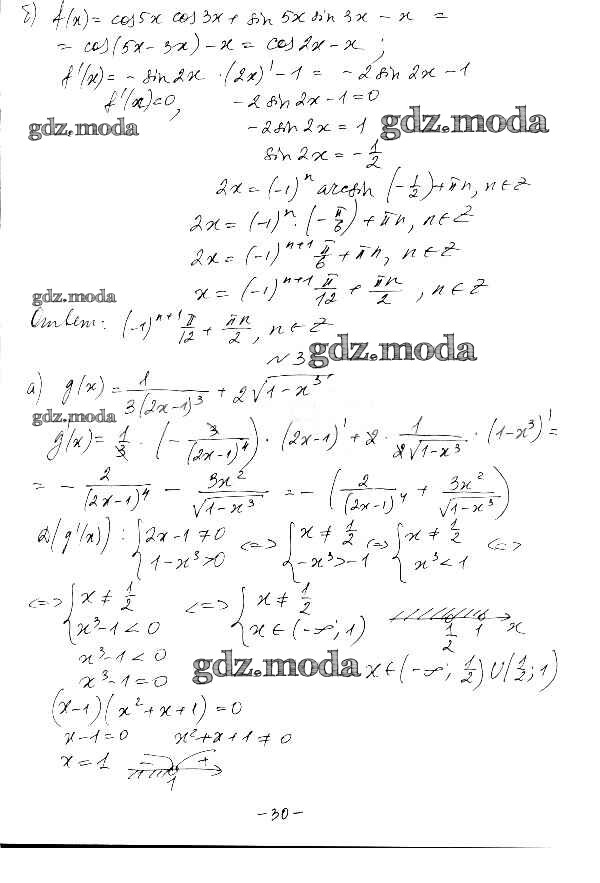 б) f(x) = cos5x cos3x + sin 5x sin 3x - x =
= cos(5x - 3x) - x = cos2x - x ;
f'(x) = - sin2x · (2x)' - 1 = - 2 sin 2x - 1
f'(x)=0, - 2 sin 2x - 1 = 0
gdz.moda
- 2 sin 2x = 1
gdz.moda
sin 2x = - 1/2
2x = (-1)^n arcsin (- 1/2) + πn, n ∈ Z
2x = (-1)^n · (- π/6) + πn, n ∈ Z
2x = (-1)^{n+1} π/6 + πn, n ∈ Z
gdz.moda
x = (-1)^{n+1} π/12 + πn/2 , n ∈ Z
Ответ: (-1)^{n+1} π/12 + πn/2, n ∈ Z
№ 3
gdz.moda
а) g(x) = 1/(3(2x-1)^3) + 2√(1-x^3)
gdz.moda
g'(x) = 1/3 · (- 3/(2x-1)^4) · (2x-1)' + 2 · 1/(2√(1-x^3)) · (1-x^3)' =
= - 2/(2x-1)^4 - 3x^2/√(1-x^3) = - (2/(2x-1)^4 + 3x^2/√(1-x^3))
D(g'(x)) : { 2x-1 ≠ 0 ; 1-x^3 > 0 <=> { x ≠ 1/2 ; -x^3 > -1 <=> { x ≠ 1/2 ; x^3 < 1 <=>
<=> { x ≠ 1/2 ; x^3 - 1 < 0 <=> { x ≠ 1/2 ; x ∈ (-∞; 1) 1/2 1 x
x^3 - 1 < 0
gdz.moda
x ∈ (-∞; 1/2) ∪ (1/2; 1)
x^3 - 1 = 0
(x-1)(x^2+x+1) = 0
x-1=0 x^2+x+1 ≠ 0
x = 1 - + 1
- 30 -